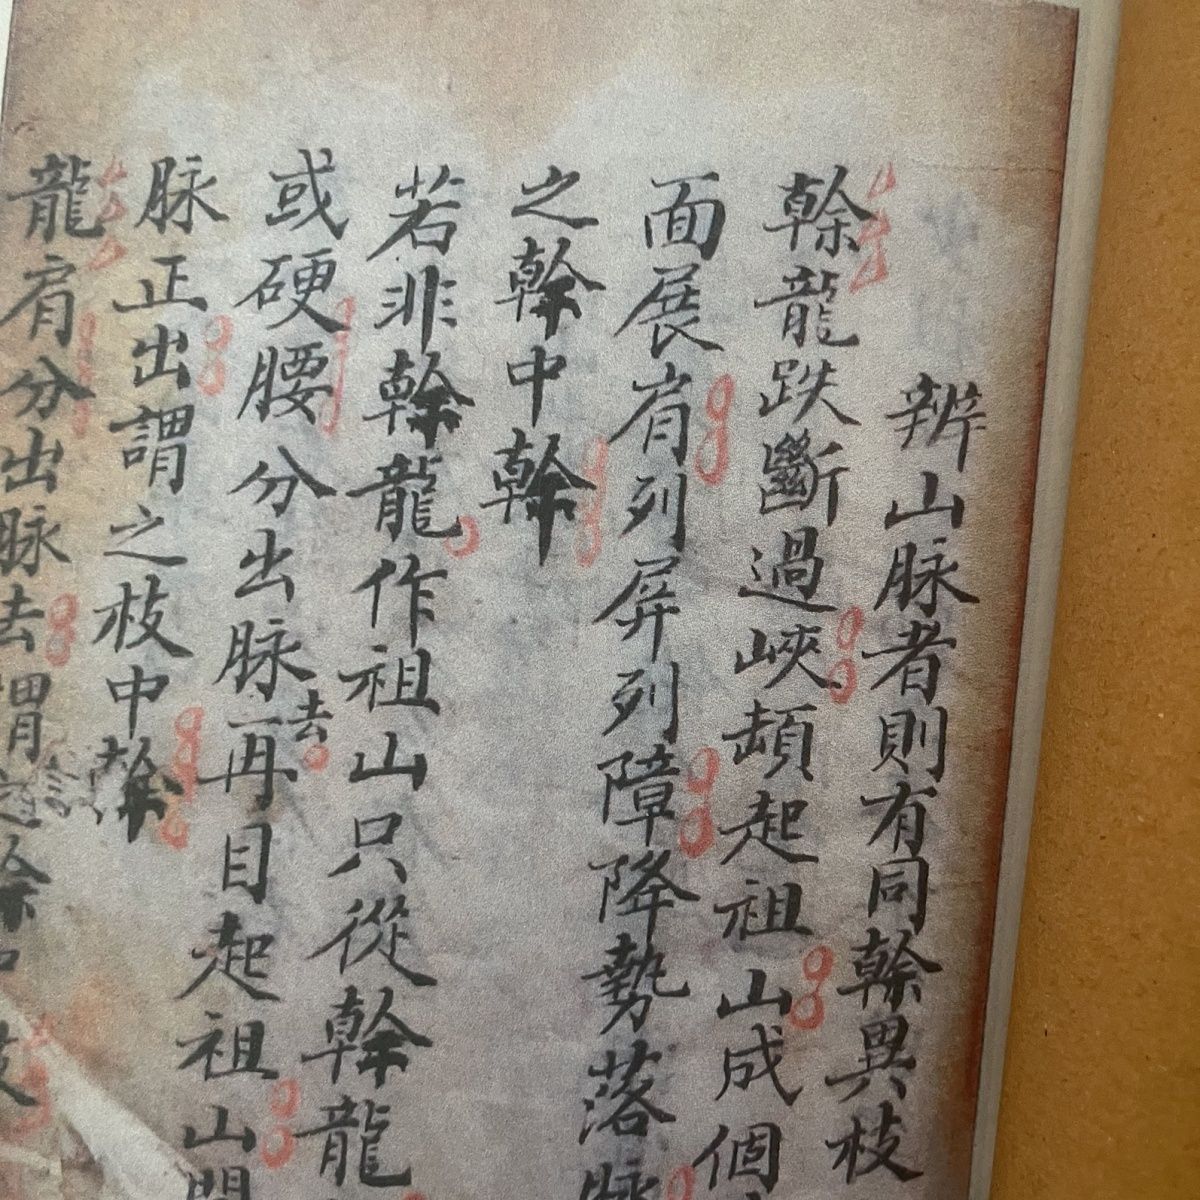 辨山脉者則有同幹異枝
幹龍跌斷過峽頓起祖山成個
面展肩列屏列障降勢落脉
之幹中幹
若非幹龍作祖山只從幹龍
或硬腰分出脉去再目起祖山開
脉正出謂之枝中幹
龍肩分出脉去謂之幹中枝